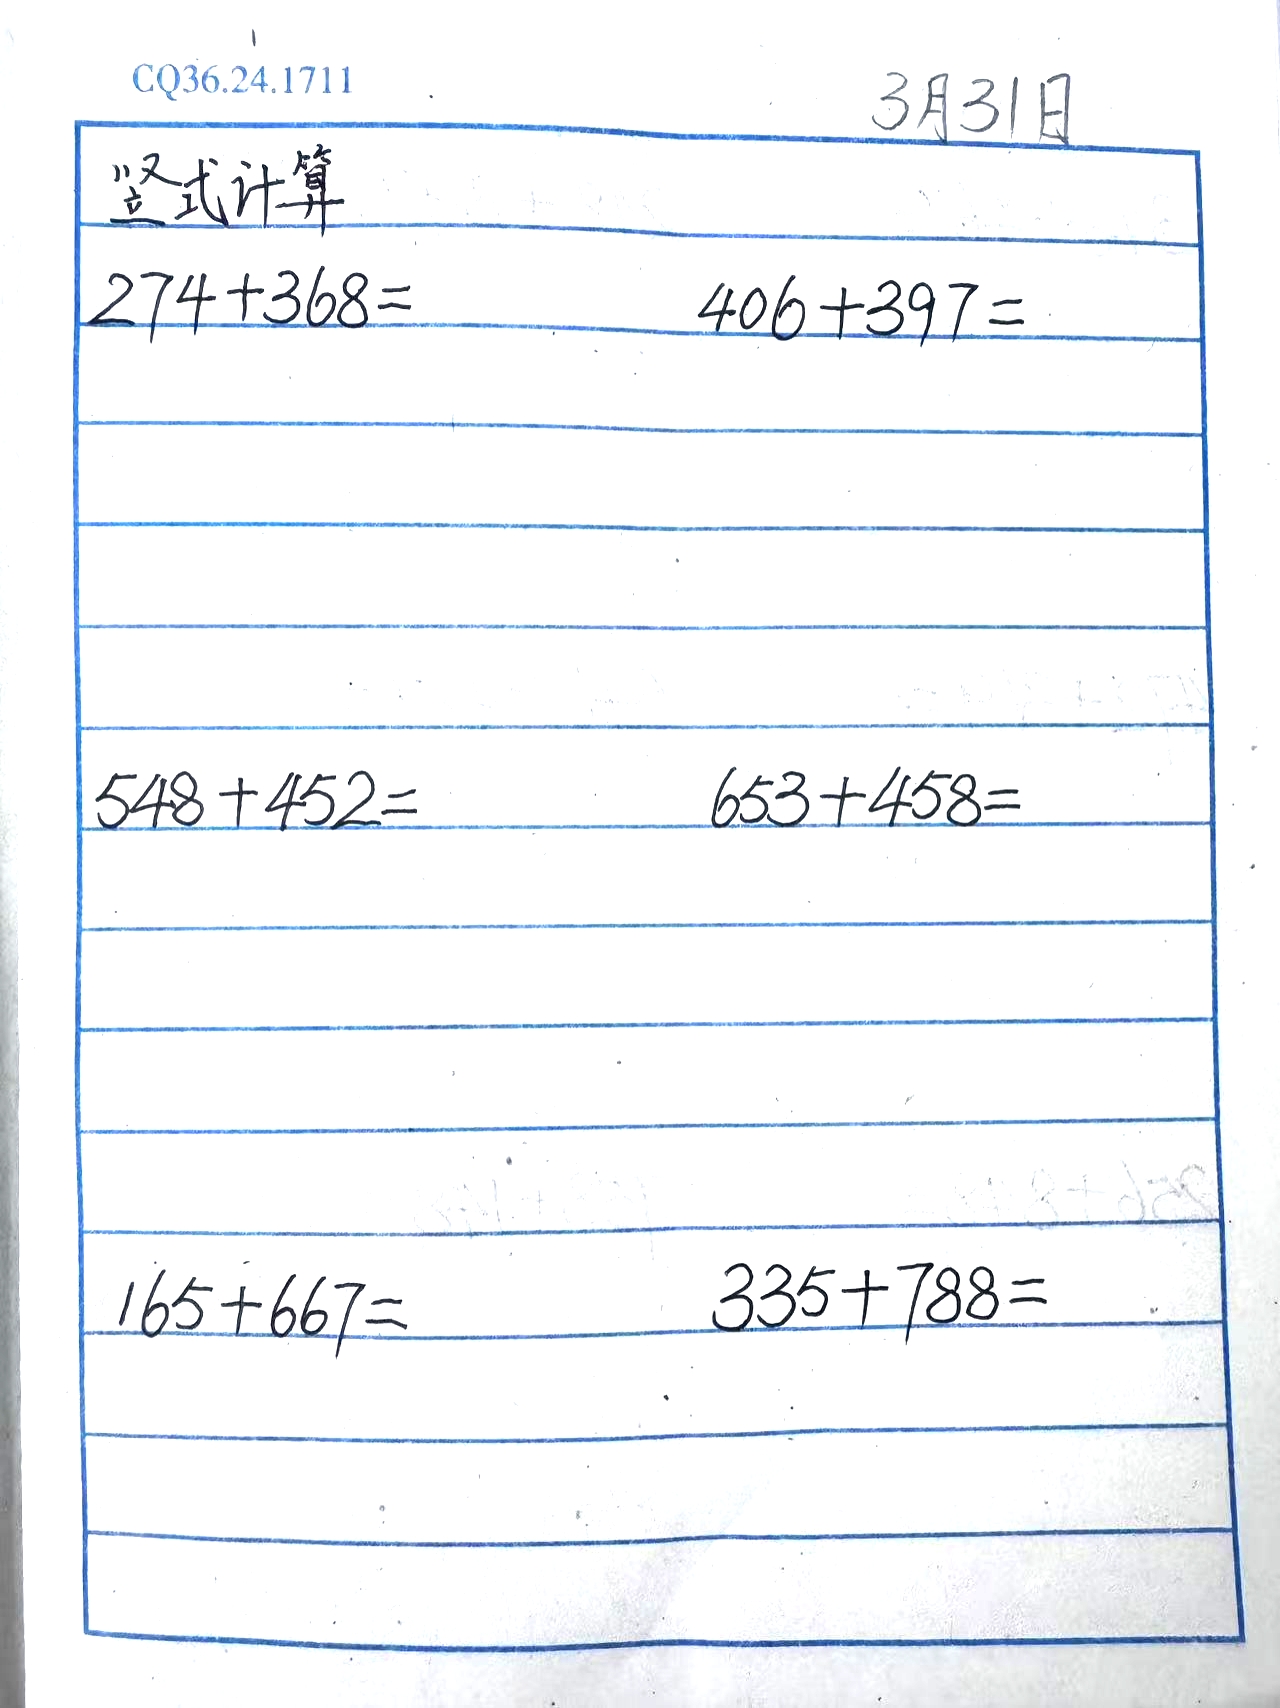 CQ36.24.1711
3月31日
竖式计算
274+368= 406+397=
548+452= 653+458=
165+667= 335+788=